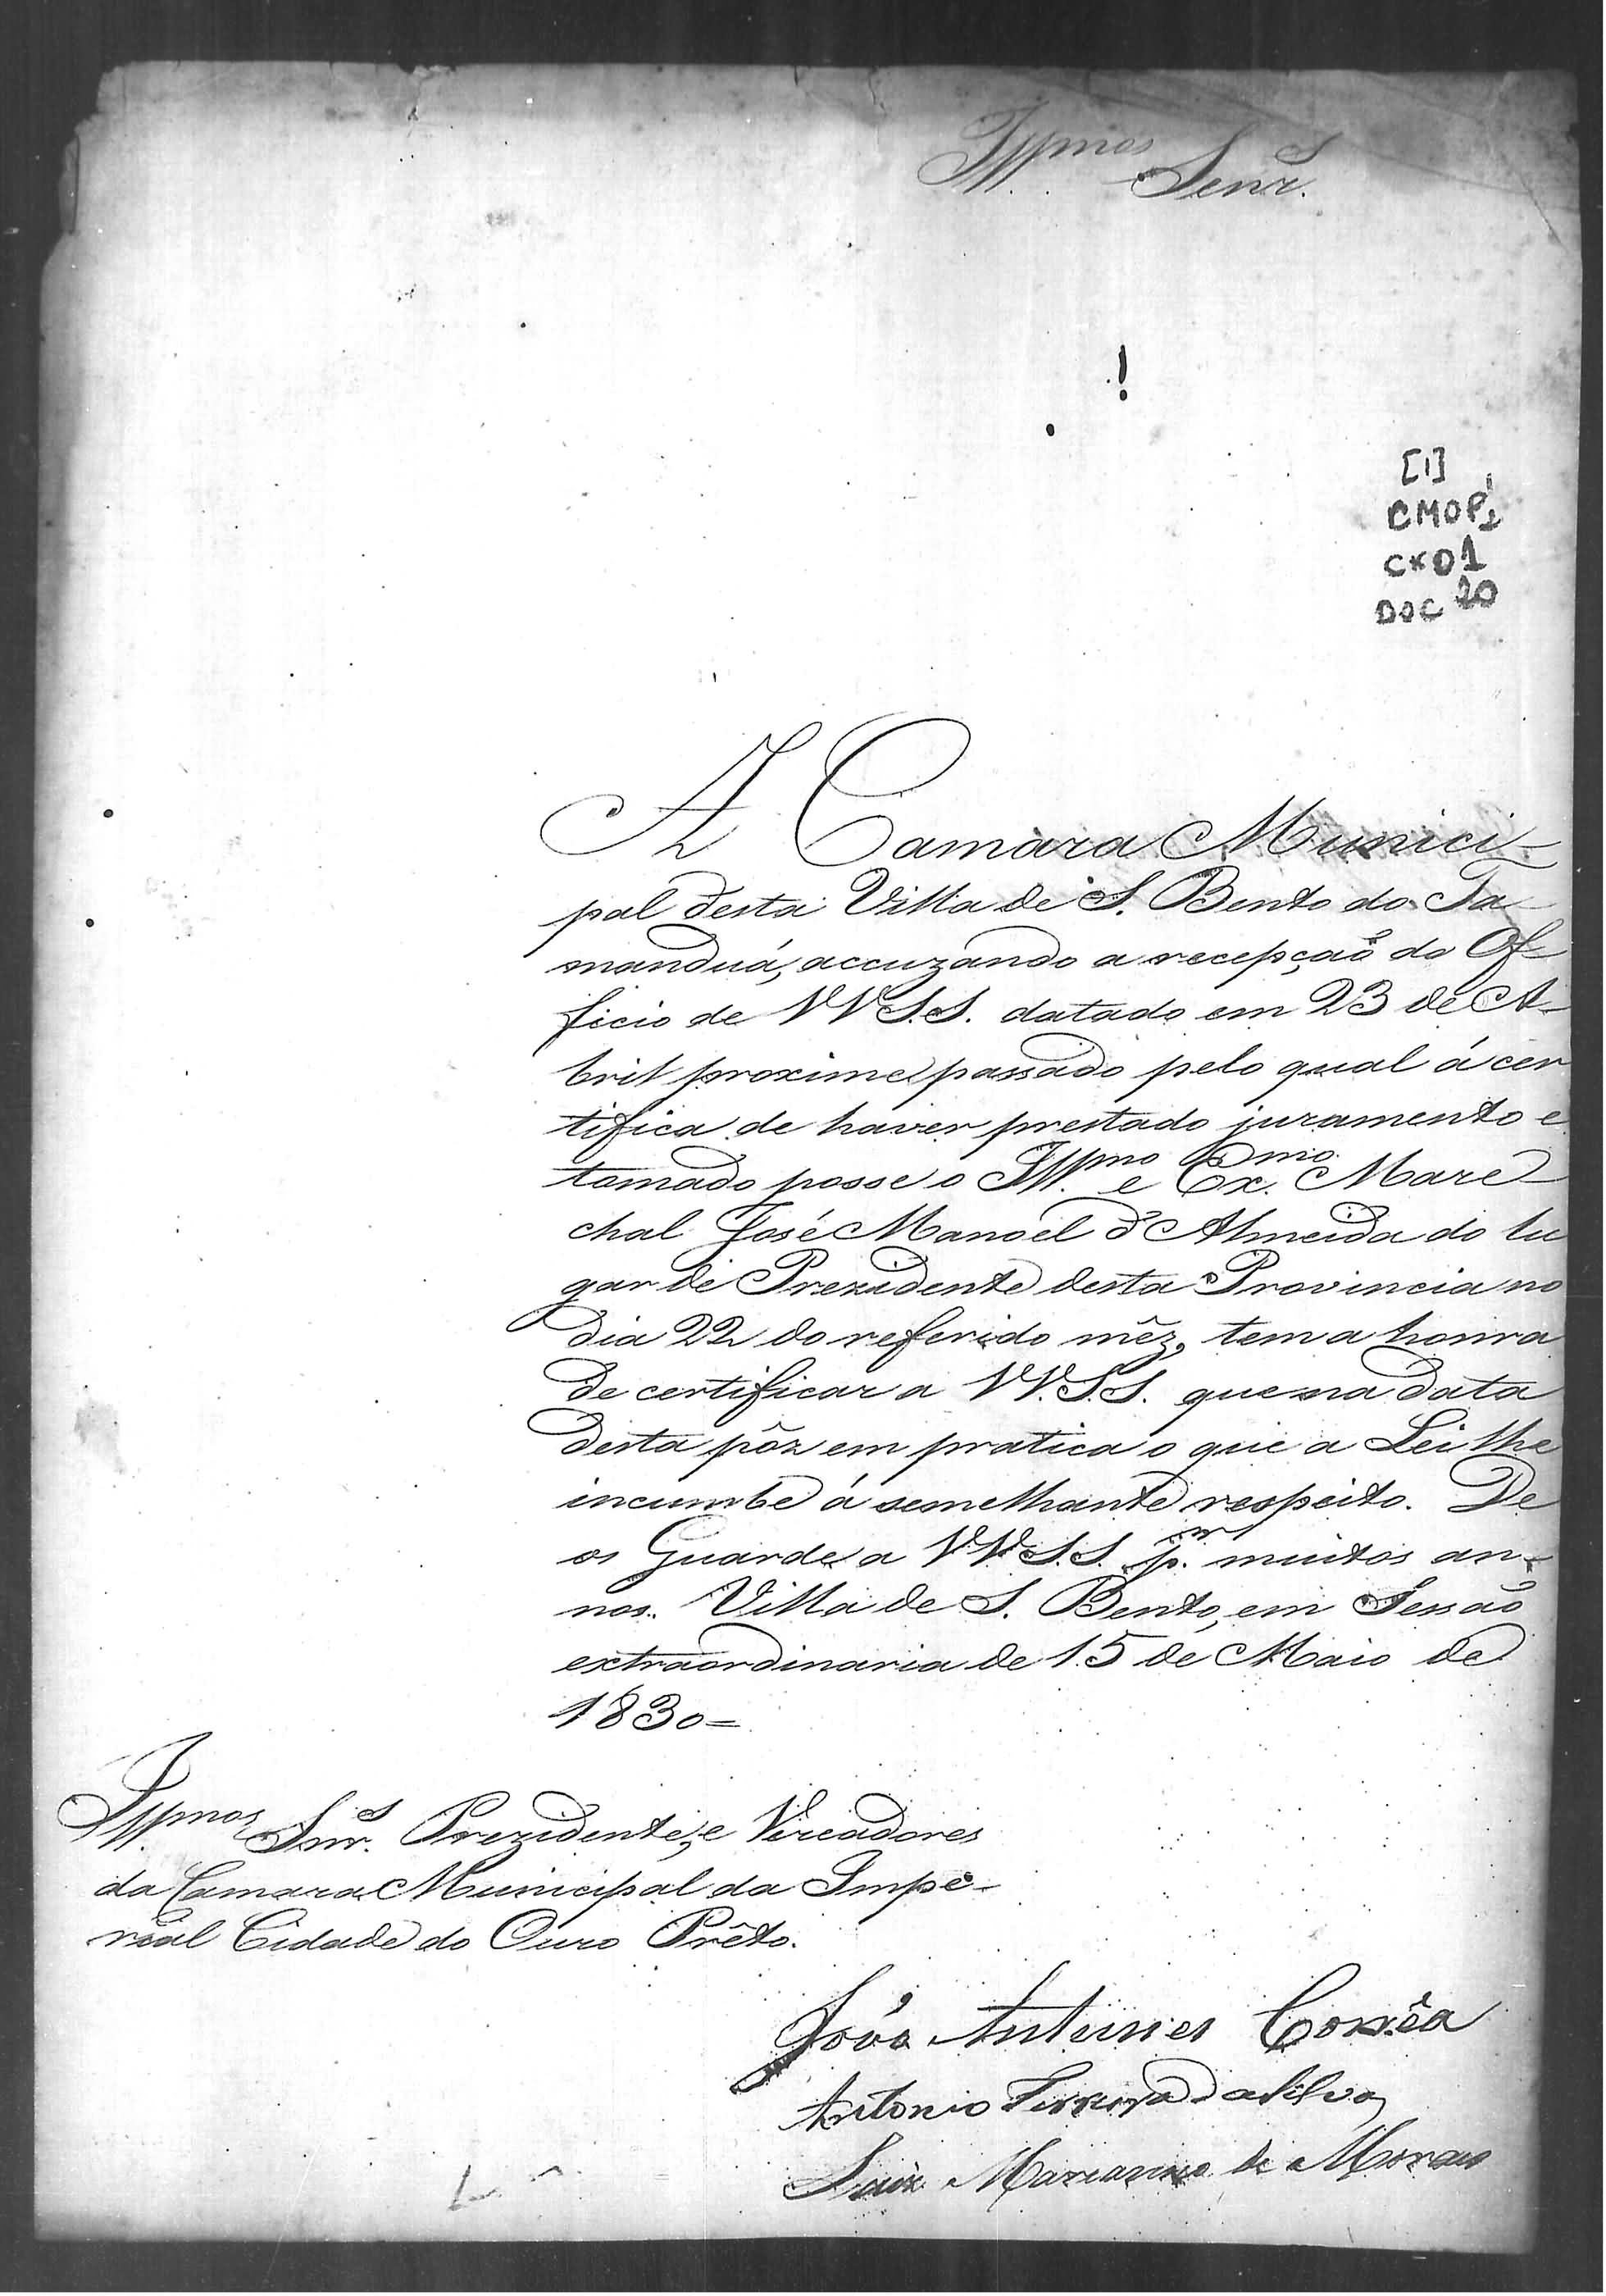 Illmos Senrs.
[1]
CMOP
CX01
DOC 20
A Camara Munici-
pal desta Villa de S. Bento do Ta-
manduá, accuzando a recepção do Of-
ficio de VV.S.S. datado em 23 de A-
bril proximo passado pelo qual á cer
tifica de haver prestado juramento e
tomado posse o Illmo. e Exmo. Mare-
chal José Manoel d'Almeida do lu
gar de Prezidente desta Provincia no
dia 22 do referido mêz, tem a honra
de certificar a VV.S.S. que na data
desta pôz em pratica o que a Lei lhe
incumbe á semelhante respeito. De
os Guarde a VV.S.S. pr. muitos an-
nos. Villa de S. Bento, em Sessão
extraordinaria de 15 de Maio de
1830=
Illmos. Snrs. Prezidente, e Vereadores
da Camara Municipal da Impe-
rial Cidade do Ouro Prêto.
João Antunes Corrêa
Antonio da Silva
Luiz Marianno de Moraes